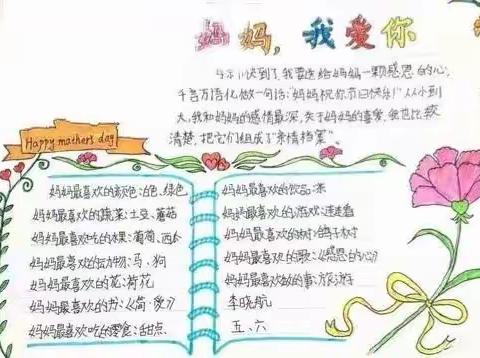 妈妈,我爱你
快到了,我要送给妈妈一颗感恩的心,
千言万语化做一句话:"妈妈祝你节日快乐!"从小到
大,我和妈妈的感情最深,关于妈妈的喜爱,我也比较
清楚,把它们组成了"亲情档案"。
Happy mothers day
妈妈最喜欢的颜色:白色、绿色
妈妈最喜欢的蔬菜:土豆、蘑菇
妈妈最喜欢吃的水果:葡萄、西瓜
妈妈最喜欢的动物:马、狗
妈妈最喜欢的花:荷花
妈妈最喜欢的书:《简·爱》
妈妈最喜欢吃的零食:甜点
妈妈最喜欢的饮品:茶
妈妈最喜欢的游戏:连连看
妈妈最喜欢的树:鸽子树
妈妈最喜欢的歌:《感恩的心》
妈妈最喜欢做的事:旅游
李晓航
五、六